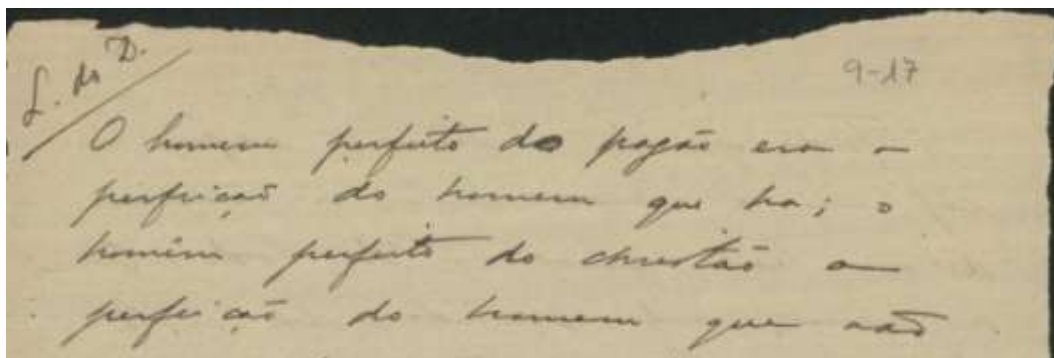 L. do D.
9-17
O homem perfeito do pagão era a
perfeição do homem que ha; o
homem perfeito do christão a
perfeição do homem que não